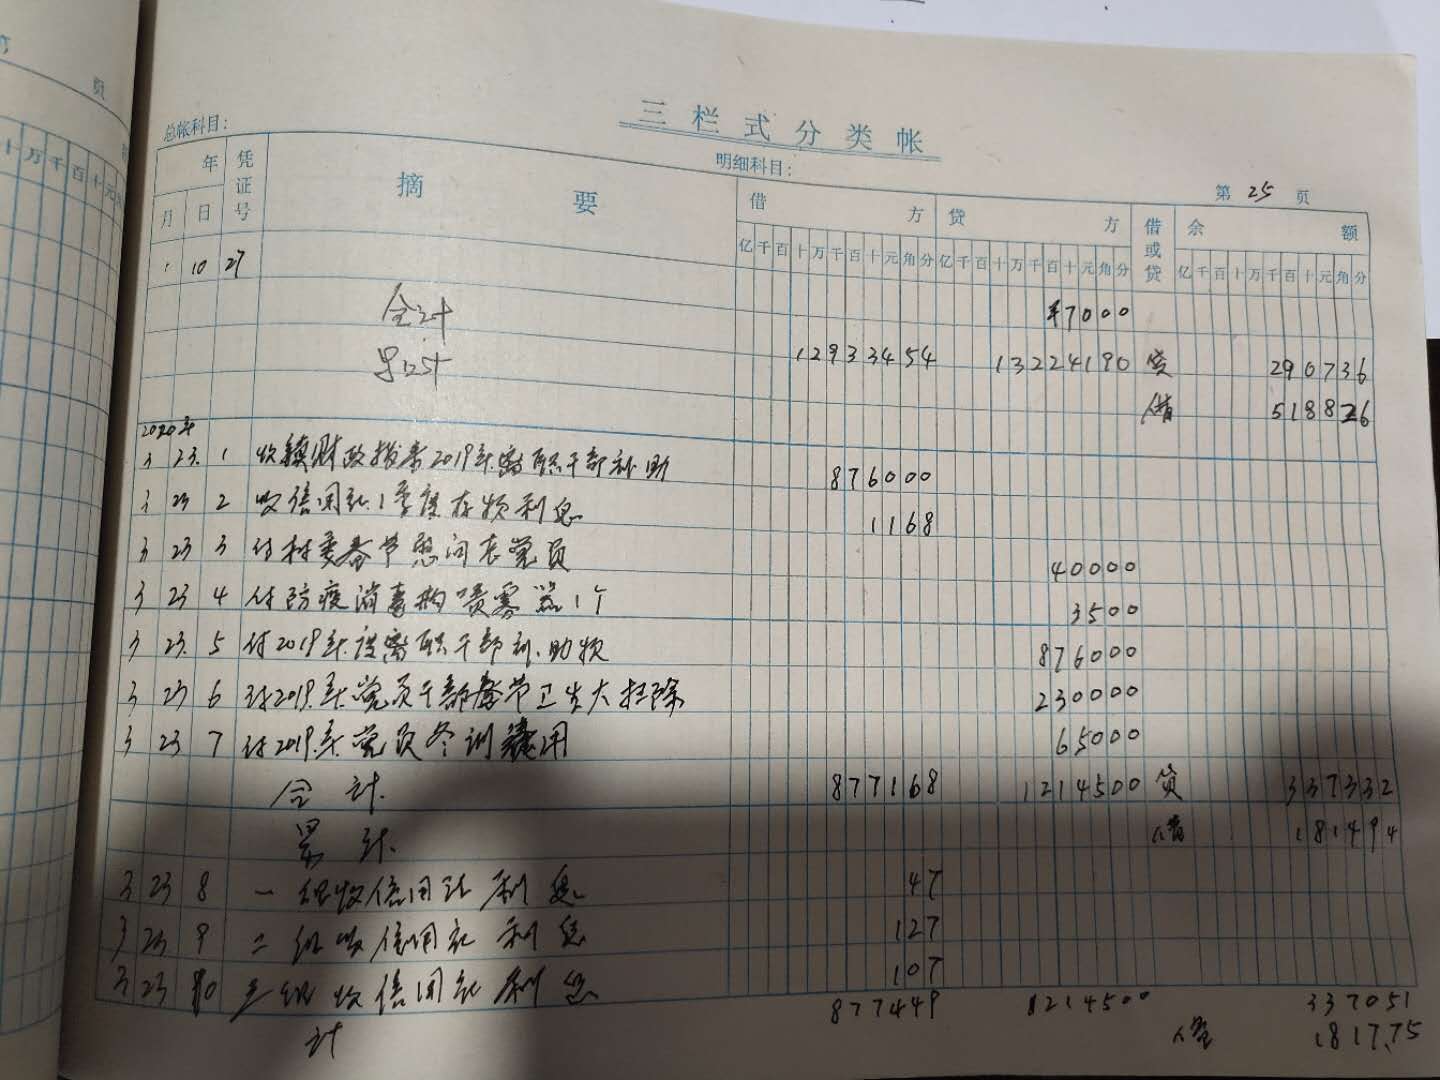 三栏式分类帐
总帐科目:
明细科目:
第 25 页
年 凭证号 摘要 借方 贷方 借或贷 余额
月 日 亿千百十万千百十元角分 亿千百十万千百十元角分 亿千百十万千百十元角分
10 27 ¥7000
合计 12933454 13224190 贷 290736
累计 借 518826
2020年
3 23. 1 收镇财政拨来2019年离职干部补助 876000
3 23 2 收信用社1季度存款利息 1168
3 23 3 付村委春节慰问老党员 40000
3 23 4 付防疫消毒购喷雾器1个 3500
3 23. 5 付2019年离职干部补助款 876000
3 23 6 付2019年党员干部春节卫生大扫除 230000
3 23 7 付2019年党员冬训费用 65000
合计. 877168 1214500 贷 337332
累计. 借 181494
3 23 8 一组收信用社利息 47
3 23 9 二组收信用社利息 127
3 23 10 三组收信用社利息 107
计 877449 1214500 337051
借 1817.75